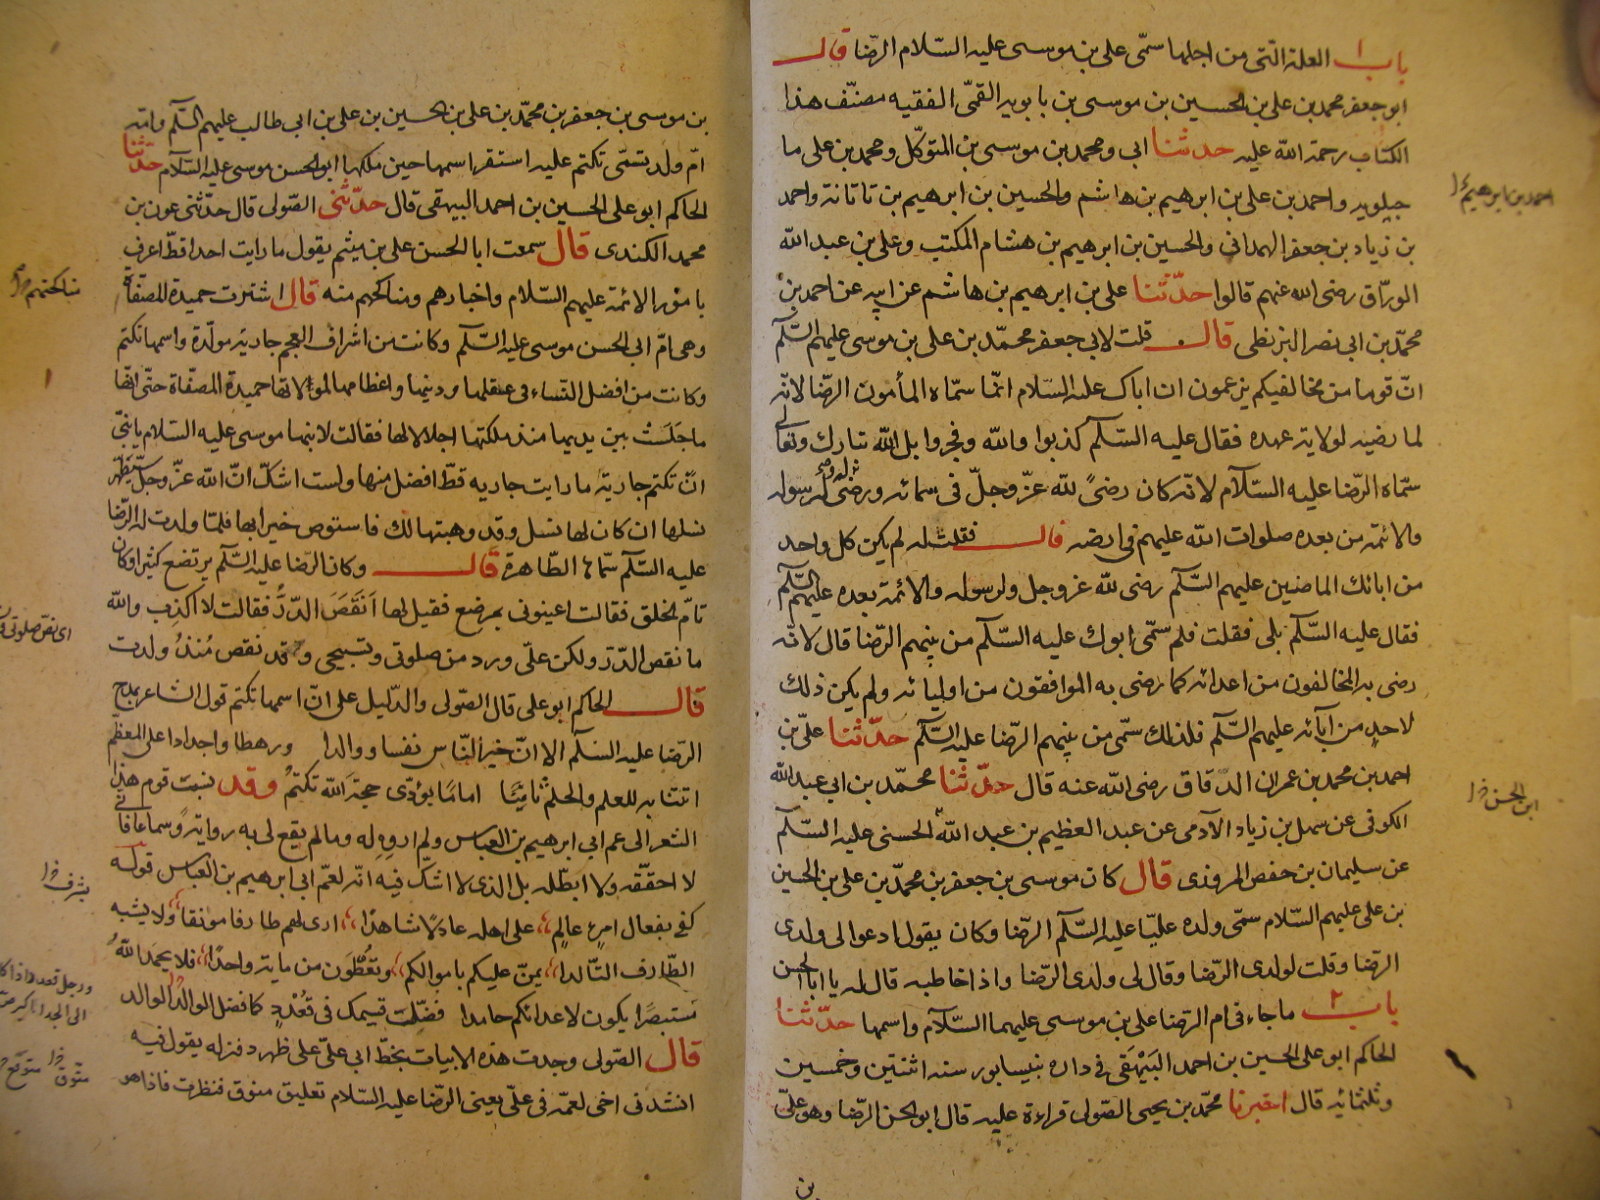 باب ١ العلة التى من اجلها سمّى على بن موسى عليه السّلام الرضّا قال
ابو جعفر محمد بن على بن الحسين بن موسى بن بابويه القمّى الفقيه مصنّف هذا
الكتاب رحمة الله عليه حدثنا ابى ومحمد بن موسى بن المتوكّل ومحمد بن على ما
جيلويه واحمد بن على بن ابرهيم بن هاشم والحسين بن ابرهيم بن تاتانة واحمد
احمد بن ابرهيم
بن زياد بن جعفر الهمدانى والحسين بن ابرهيم بن هشام المكتب وعلى بن عبد الله
الورّاق رضى الله عنهم قالوا حدّثنا على بن ابرهيم بن هاشم عن ابيه عن احمد بن
محمّد بن ابى نصر البزنطى قال قلت لابى جعفر محمّد بن على بن موسى عليهم السّلم
انّ قوما من مخالفيكم يزعمون ان اباك عليه السّلام انّما سمّاه المأمون الرضّا لانّه
لما رضيه لولاية عهده فقال عليه السّلم كذبوا والله وفجروا بل الله تبارك وتعالى
سمّاه الرضّا عليه السّلام لانّه كان رضىً لله عزّ وجلّ فى سمائه ورضى لرسوله
والائمّة من بعده صلوات الله عليهم فى ارضه قال فقلت له لم يكن كل واحد
من ابائك الماضين عليهم السّلم رضى لله عز وجل ولرسوله والائمة بعده عليهم السّلم
فقال عليه السّلم بلى فقلت فلم سمّى ابوك عليه السّلم من بينهم الرضّا قال لانّه
رضى به المخالفون من اعدائه كما رضى به الموافقون من اوليائه ولم يكن ذلك
لاحدٍ من آبائه عليهم السّلم فلذلك سمّى من بينهم الرضّا عليه السّلم حدّثنا علىّ بن
احمد بن محمد بن عمران الدّقاق رضى الله عنه قال حدّثنا محمّد بن ابى عبد الله
ابن الحسن
الكوفى عن سهل بن زياد الآدمى عن عبد العظيم بن عبد الله الحسنى عليه السّلم
عن سليمان بن حفص المروزى قال كان موسى بن جعفر بن محمّد بن على بن الحسين
بن على عليهم السّلام سمّى ولده عليّا عليه السّلم الرضّا وكان يقول ادعوا لى ولدى
الرضّا وقلت لولدى الرضّا وقال لى ولدى الرضّا واذا خاطبه قال له يا ابا الحسن
باب ٢ ما جاء فى ام الرضّا على بن موسى عليهما السّلام واسمها حدّثنا
الحاكم ابو على الحسين بن احمد البَيْهَقى فى داره بنيسابور سنة اثنتين وخمسين
وثلثمائة قال اخبرنا محمّد بن يحيى الصّولى قراءة عليه قال ابو الحسن الرضّا وهو علىّ
بن
بن موسى بن جعفر بن محمّد بن على بن الحسين بن على بن ابى طالب عليهم السّلم وامّه
امّ ولد تسمّى تكتم عليه استقر اسمها حين ملكها ابو الحسن موسى عليه السّلام حدّثنا
الحاكم ابو على الحسين بن احمد البيهقى قال حدّثنى الصّولى قال حدّثنى عون بن
محمد الكندى قال سمعت ابا الحسن على بن ميثم يقول ما رايت احدا قطّ اعرف
بامور الائمّة عليهم السّلام واخبارهم ومناكحهم منه قال اشترت حميدة المصفّاة
مناكحتهم
وهى امّ ابى الحسن موسى عليه السّلم وكانت من اشراف العجم جارية مولّدة واسمها تكتم
وكانت من افضل النّساء فى عقلها ودينها واعظامها لمولاتها حميدة المصفّاة حتّى انّها
ما جَلَسَتْ بين يديها منذ ملكتها اجلالا لها فقالت لابنها موسى عليه السّلام يا بنىّ
انّ تكتم جارية ما رايت جارية قطّ افضل منها ولست اشكّ انّ الله عزّ وجلّ سيُظهّر
نسلها ان كان لها نسل وقد وهبتها لك فاستوص خيرا بها فلمّا ولدت له الرضّا
عليه السّلم سمّاها الطّاهرة قال وكان الرضّا عليه السّلم يرتضع كثيرا وكان
تامّ الخلق فقالت اعينونى بمرضع فقيل لها اَنَقَصَ الدّرُّ فقالت لا اكذب والله
ما نقص الدّرّ ولكن علىّ ورد من صلوتى وتسبيحى وقد نقص مُنذُ ولدت
قال الحاكم ابو على قال الصّولى والدّليل على انّ اسمها تكتم قول الشاعر يمدح
الرضّا عليه السّلم الا انّ خير النّاس نفسا ووالدا ورهطا واجدادا على المعظم
اتتنا به للعلم والحلم ثامِنًا امامًا يؤدّى حجّة الله تكتمُ وقد نسبت قوم هذا
الشعر الى عم ابى ابرهيم بن العباس ولم اروه له وما لم يقع لى به رواية وسماعا فانّى
لا احققه ولا ابطله بل الذى لا اشك فيه انّه لعمّ ابى ابرهيم بن العباس قوله
كفى بفعال امرءٍ عالمٍ على اهله عادلًا شاهدًا ارى لهم طارفا مونقا ولا يشبه
بشرف
الطّارف التّالدا يمنّ عليكم باموالكم وتعُطَون من ماية واحدًا فلا يحمد الله
مستبصرًا يكون لاعدائكم حامدا فضّلت قسيمك فى قُعْدُدٍ كما فضل الوالد الوالد
قال الصّولى وجدت هذه الابيات بخطّ ابى علىّ على ظهر دفتر له يقول فيه
انشدنى اخى لعمّه فى علّى يعنى الرضّا عليه السّلام تعليق متوق فنظرت فاذا هو